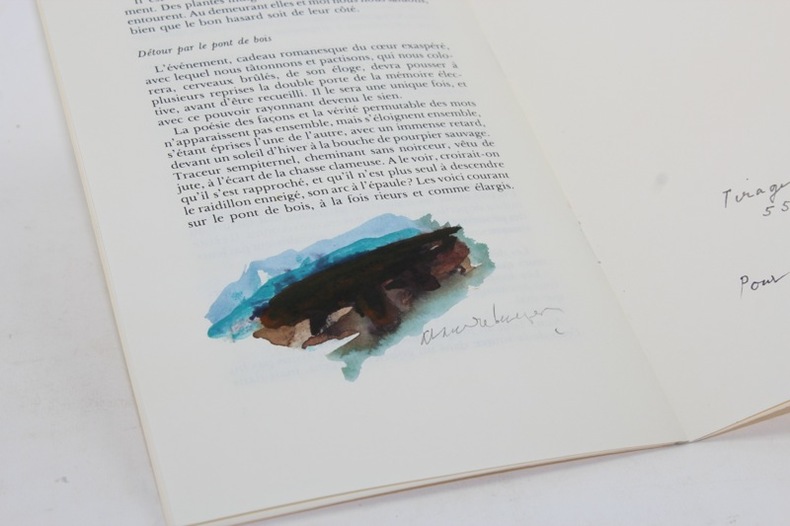 ment. Des plantes
entourent. Au demeurant elles et moi nous
bien que le bon hasard soit de leur côté.
Détour par le pont de bois
L'événement, cadeau romanesque du cœur exaspéré,
avec lequel nous tâtonnons et pactisons, qui nous colo-
rera, cerveaux brûlés, de son éloge, devra pousser à
plusieurs reprises la double porte de la mémoire élec-
tive, avant d'être recueilli. Il le sera une unique fois, et
avec ce pouvoir rayonnant devenu le sien.
La poésie des façons et la vérité permutable des mots
n'apparaissent pas ensemble, mais s'éloignent ensemble,
s'étant éprises l'une de l'autre, avec un immense retard,
devant un soleil d'hiver à la bouche de pourpier sauvage.
Traceur sempiternel, cheminant sans noirceur, vêtu de
jute, à l'écart de la chasse clameuse. A le voir, croirait-on
qu'il s'est rapproché, et qu'il n'est plus seul à descendre
le raidillon enneigé, son arc à l'épaule? Les voici courant
sur le pont de bois, à la fois rieurs et comme élargis.
Tirage
55
Pour